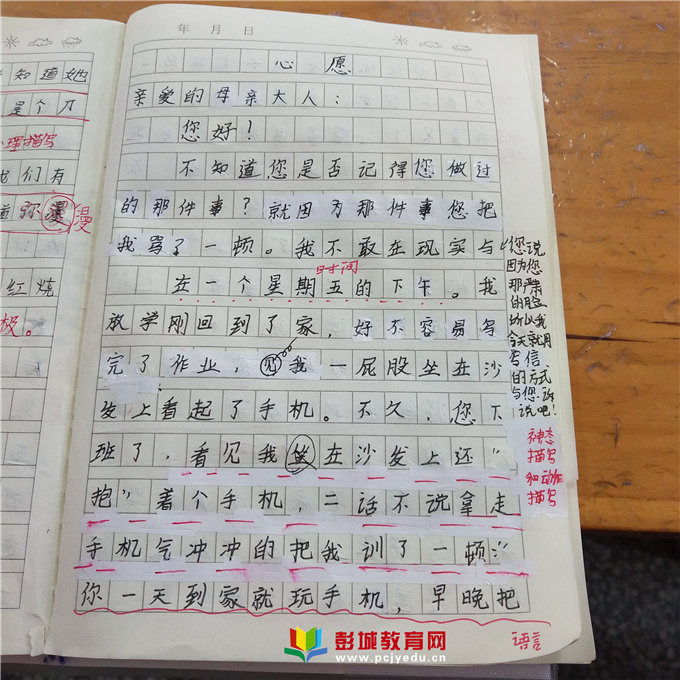 年 月 日
心愿
亲爱的母亲大人：
您好！
不知道您是否记得您做过
的那件事？就因为那件事您把
我骂了一顿。我不敢在现实与
您说
因为您
那严肃
的脸
所以我
今天就用
写信
的方式
与您诉
说吧！
时间
在一个星期五的下午。我
放学刚回到了家，好不容易写
完了作业，见我一屁股坐在沙
发上看起了手机。不久，您下
班了，看见我坐在沙发上还“
抱”着个手机，二话不说拿走
手机气冲冲的把我训了一顿：“
你一天到家就玩手机，早晚把
神态
描写
和动作
描写
语言
知道她
是个
心理描写
我们有
道弥漫
漫
红烧
极。
彭城教育网
www.pcjyedu.cn